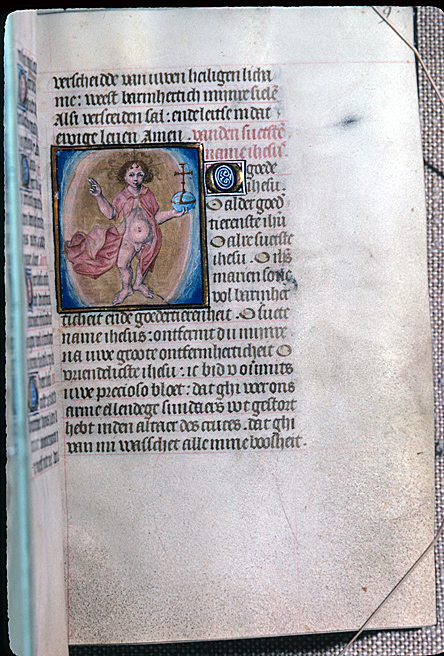 verscheide van uwen heiligen lich
me: weest barmhertich mijnre siele
Als verscheiden sal: ende leitse in dat
ewige leuen Amen. van den suetste
name ihesus.
O goede
ihesu.
O alder goed
tierenste ihu
O alre suetste
ihesu. O ihs
marien sone
vol barmher
ticheit ende goedertierenheit. O suete
name ihesus: ontfermt du mijnre
na uwe groote ontfermherticheit O
vriendlicste ihesu: ic bid v ofmits
uwe precioso bloet: dat ghi voer ons
arme ellendege sundaers wt gestort
hebt inden altaer des cruces. dat ghi
van mi wasschet alle mine boosheit.